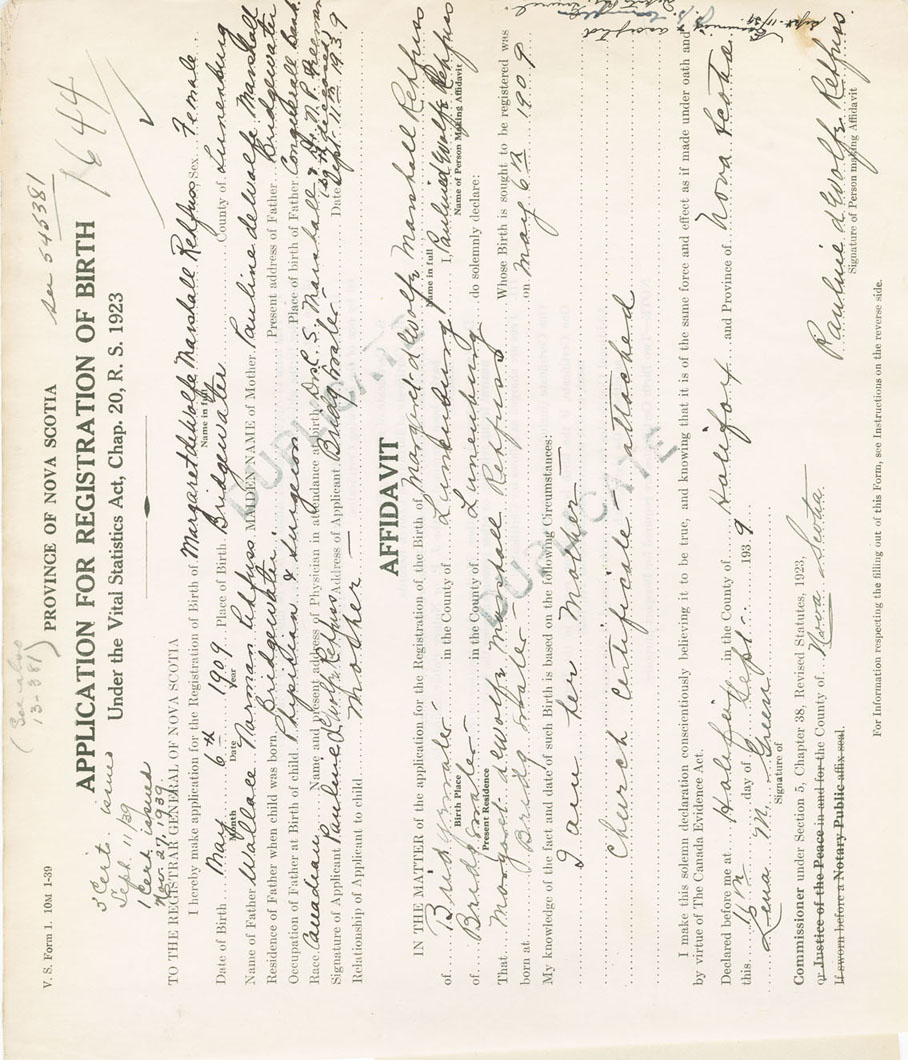 V. S. Form 1. 10M 1-39
(See also
13-381)
PROVINCE OF NOVA SCOTIA
545381
1644
APPLICATION FOR REGISTRATION OF BIRTH
Under the Vital Statistics Act, Chap. 20, R. S. 1923
3 Cert. issued
Sept. 11/39
1 Cert. issued
Nov. 27, 1939
TO THE REGISTRAR GENERAL OF NOVA SCOTIA
I hereby make application for the Registration of Birth of Margaret deWolfe Marshall Rehfuss Sex Female
Name in full
Date of Birth May 6th 1909 Place of Birth Bridgewater County of Lunenburg
Month Date Year
Name of Father Wallace Norman Rehfuss MAIDEN NAME of Mother Pauline deWolfe Marshall
Residence of Father when child was born Bridgewater Present address of Father Bridgewater
Occupation of Father at Birth of child Physician & Surgeon Place of birth of Father Conquerall Bank
Race Canadian Name and present address of Physician in attendance at birth Dr. C. S. Marshall & Dr. N. P. Freeman
(Both deceased)
Signature of Applicant Pauline deWolfe Rehfuss Address of Applicant Bridgewater Date Sept. 11th 1939
Relationship of Applicant to child Mother
AFFIDAVIT
IN THE MATTER of the application for the Registration of the Birth of Margaret deWolfe Marshall Rehfuss
Name in full
of Bridgewater in the County of Lunenburg I, Pauline deWolfe Rehfuss
Birth Place Name of Person Making Affidavit
of Bridgewater in the County of Lunenburg do solemnly declare:
Present Residence
That Margaret deWolfe Marshall Rehfuss Whose Birth is sought to be registered was
born at Bridgewater on May 6th 1909
My knowledge of the fact and date of such Birth is based on the following Circumstances:
I am her Mother
Church Certificate attached
accepted
Sept. 11/39
I make this solemn declaration conscientiously believing it to be true, and knowing that it is of the same force and effect as if made under oath and
by virtue of The Canada Evidence Act.
Declared before me at Halifax in the County of Halifax and Province of Nova Scotia
this 11th day of Sept. 1939
Lena M. Green
Signature of
Pauline deWolfe Rehfuss
Signature of Person making Affidavit
Commissioner under Section 5, Chapter 38, Revised Statutes, 1923,
or Justice of the Peace in and for the County of Nova Scotia
If sworn before a Notary Public affix seal.
For Information respecting the filling out of this Form, see Instructions on the reverse side.
DUPLICATE
DUPLICATE